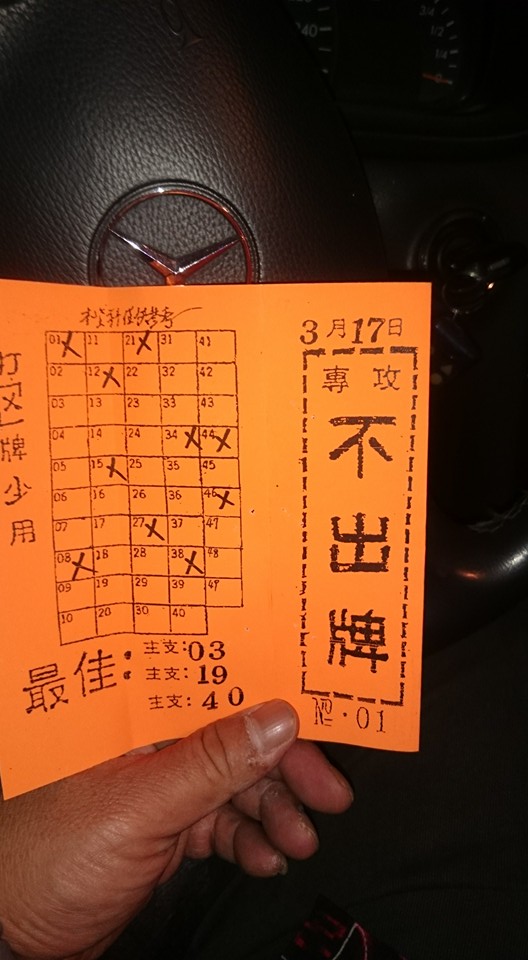 3月17日
專攻
不出牌
№.01
01 11 21 31 41
02 12 22 32 42
03 13 23 33 43
04 14 24 34 44
05 15 25 35 45
06 16 26 36 46
07 17 27 37 47
08 18 28 38 48
09 19 29 39 49
10 20 30 40
打叉牌少用
最佳:
主支:03
主支:19
主支:40
240
3/4
1/2
1/4